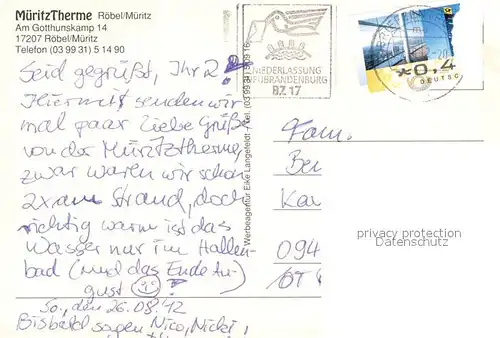 MüritzTherme Röbel/Müritz
Am Gotthunskamp 14
17207 Röbel/Müritz
Telefon (03 99 31) 5 14 90
Seid gegrüßt, Ihr 2!
Hiermit senden wir
mal paar liebe Grüße
von der Müritztherme,
zwar waren wir schon
2x am Strand, doch
richtig warm ist das
Wasser nur im Hallen-
bad (und das Ende Au-
gust
So., den 26.08.12
Bisbald sagen Nico, Nicki,
Werbeagentur Eike Langefeldt · Tel. (03 99 31)
NIEDERLASSUNG
NEUBRANDENBURG
BZ 17
0,4
DEUTSC
Fam.
Be
Ka
094
OT
privacy protection
Datenschutz